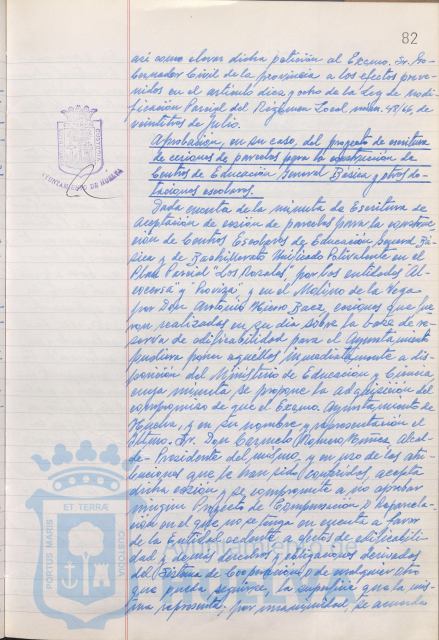 82
así como elevar dicha petición al Excmo. Sr. Go-
bernador Civil de la provincia a los efectos preve-
nidos en el artículo dieciocho de la Ley de modi-
ficación Parcial del Régimen Local núm. 48/66, de
veintitres de Julio.
Aprobación, en su caso, del proyecto de escritura
de cesiones de parcelas para la construcción de
Centros de Educación General Básica y otras do-
taciones escolares.
Dada cuenta de la minuta de Escritura de
aceptación de cesión de parcelas para la construc-
ción de Centros Escolares de Educación General Bá-
sica y de Bachillerato Unificado Polivalente en el
Plan Parcial "Los Rosales" por las entidades
y en el Molino de la Vega
por Don Antonio Hierro Baez, cesiones que fue-
ron realizadas en su día sobre la base de re-
serva de edificabilidad para el Ayuntamiento
pudiera poner aquellos inmediatamente a dis-
posición del Ministerio de Educación y Ciencia,
cuya minuta se propone la adquisición del
compromiso de que el Excmo. Ayuntamiento de
Huelva, y en su nombre y representación el
Iltmo. Sr. Don Carmelo Romero Alcal-
de-Presidente del mismo, y en uso de las atri-
buciones que le han sido conferidas, acepta
dicha cesión y se compromete a no aprobar
ningún Proyecto de Compensación o Reparcela-
ción en el que no se tenga en cuenta a favor
de la Entidad cedente a efectos de edificabili-
dad y demás derechos y obligaciones derivados
del Sistema de Cooperación o de cualquier otro
que pueda seguirse, la superficie que la mis-
ma representa; por unanimidad, se acuerda
AYUNTAMIENTO DE HUELVA
PORTUS MARIS
ET TERRAE
CUSTODIA